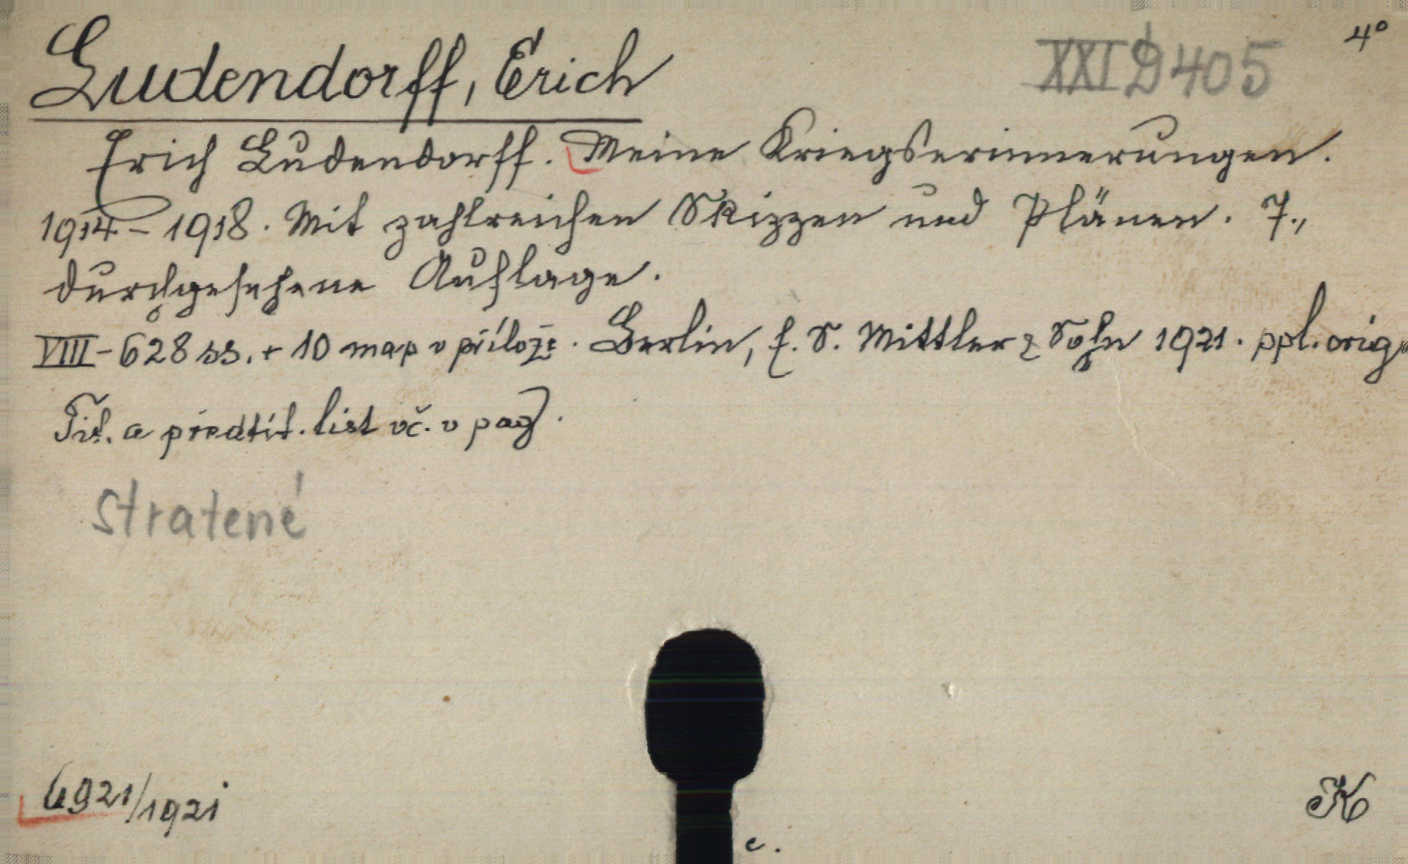 Ludendorff, Erich
XXI D 405
4°
Erich Ludendorff. Meine Kriegserinnerungen.
1914-1918. Mit zahlreichen Skizzen und Plänen. 7.,
durchgesehene Auflage.
VIII-628 ss. + 10 map v příloze. Berlin, E. S. Mittler & Sohn 1921. ppl. orig.
Tit. a předtit. list vč. v pag.
Stratené
6921/1921
K
c.